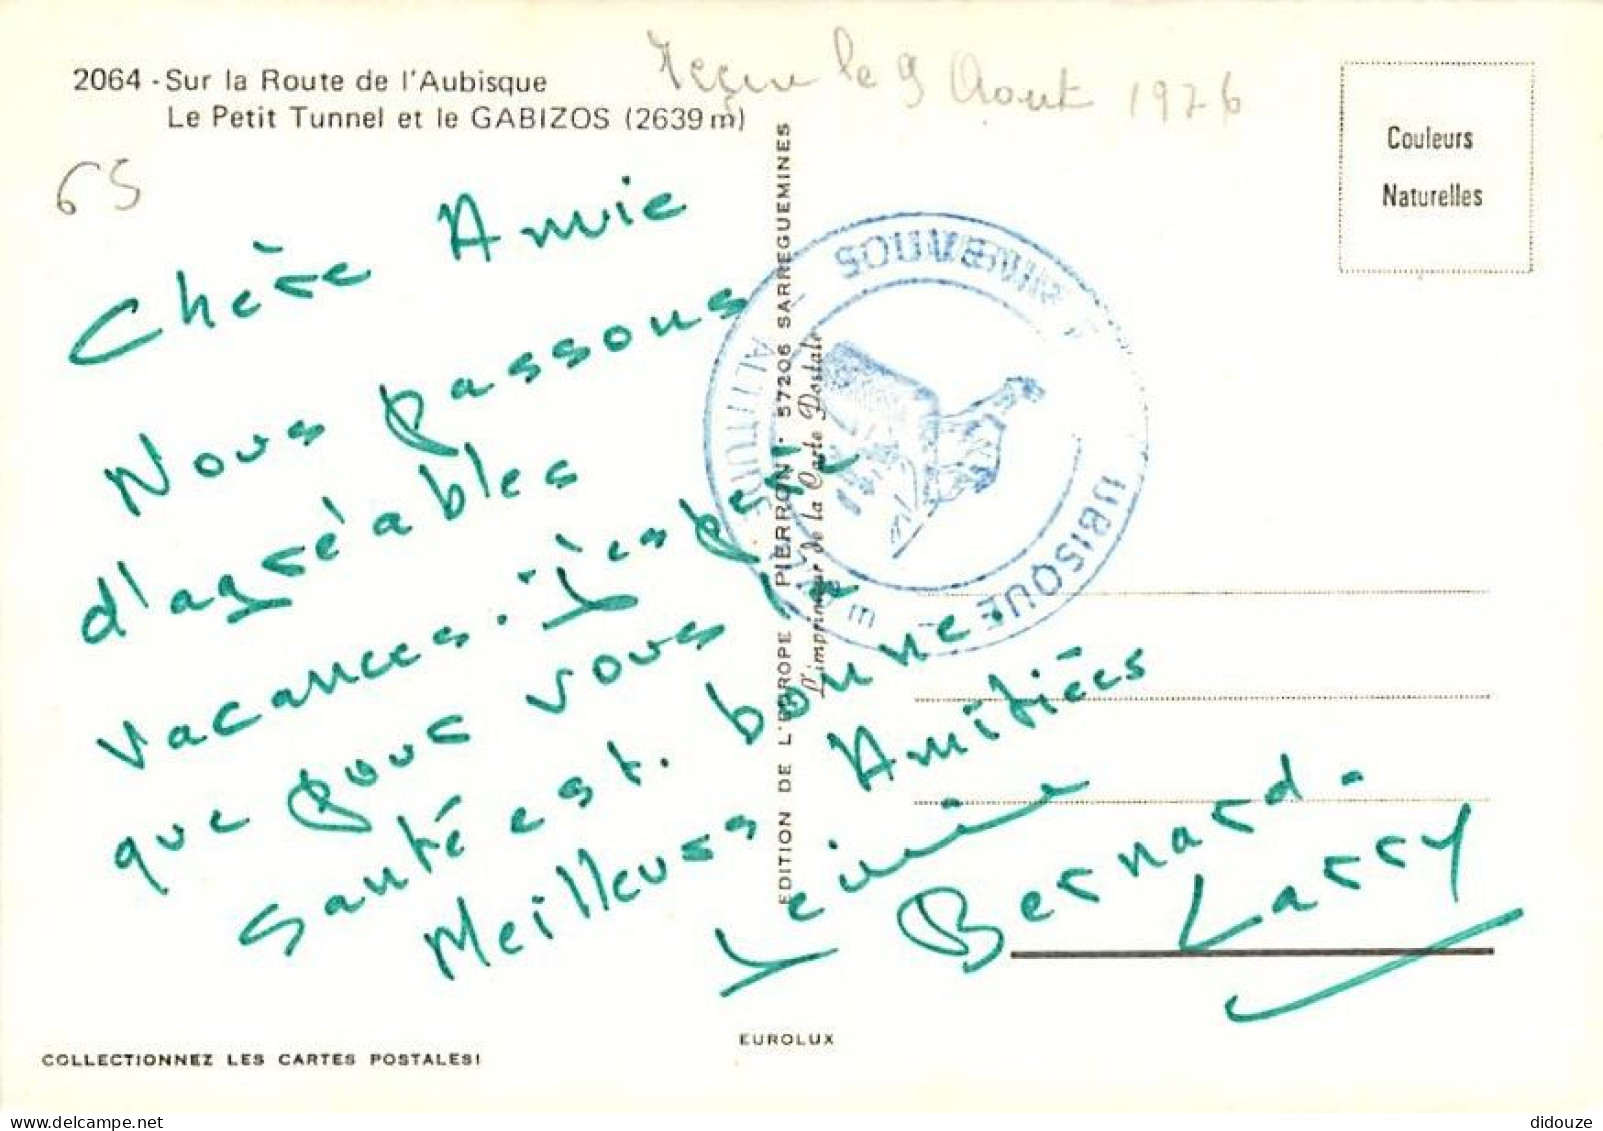 2064 - Sur la Route de l'Aubisque
Le Petit Tunnel et le GABIZOS (2639 m)
Reçue le 9 Aout 1976
65
Couleurs
Naturelles
Chère Amie
Nous passons
d'agréables
vacances. J'espère
que pour vous la
santé est. bonne.
Meilleures Amitiées
Bernard -
Larry
ALTITUDE
m
UBISQUE
EDITION DE L'EUROPE PIERRON 57206 SARREGUEMINES
L'imprimeur de la Carte Postale
EUROLUX
COLLECTIONNEZ LES CARTES POSTALES!
didouze